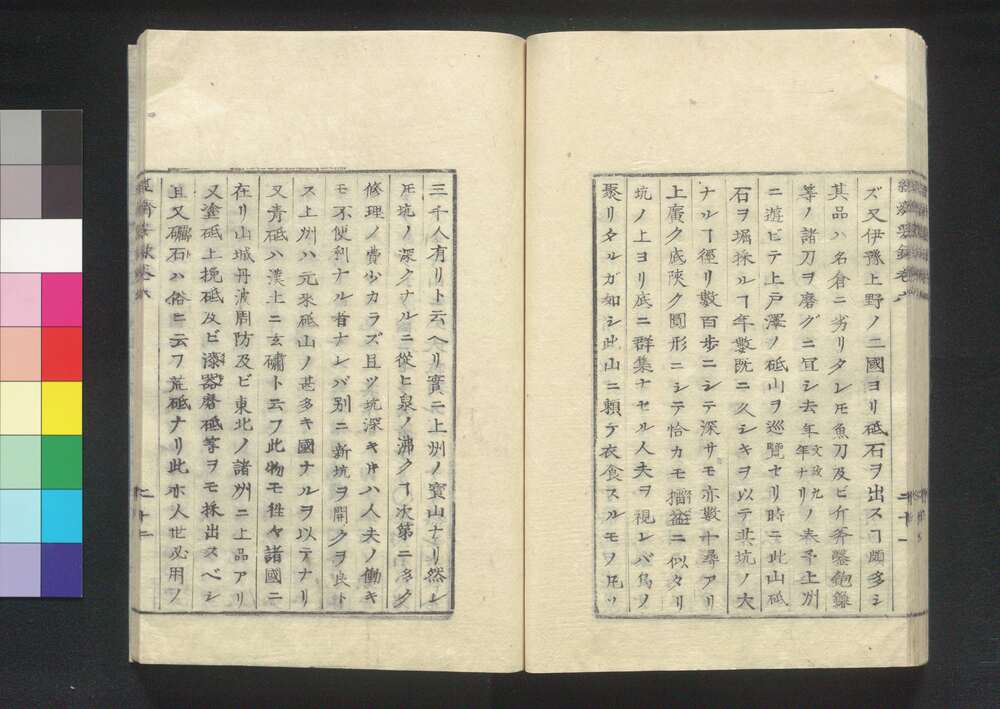 ズ又伊豫上野ノ二國ヨリ砥石ヲ出スヿ頗多シ
其品ハ名倉ニ劣リタレ𪜈魚刀及ビ斤斧鑿鉋鎌
等ノ諸刀ヲ磨グニ冝シ去年文政九年ナリノ春予上州
ニ遊ビテ上戸澤ノ砥山ヲ巡覽セリ時ニ此山砥
石ヲ堀採ルヿ年數既ニ久シキヲ以テ其坑ノ大
ナルヿ徑リ數百歩ニシテ深サモ亦數十尋アリ
上廣ク底陜ク圓形ニシテ恰カモ擂盆ニ似タリ
坑ノ上ヨリ底ニ群集ナセル人夫ヲ視レバ鳥ノ
聚リタルガ如シ此山ニ賴テ衣食スルモノ凡ソ
二十一
三千人有リト云ヘリ實ニ上州ノ寶山ナリ然レ
𪜈坑ノ深クナルニ從ヒ泉ノ沸クヿ次第ニ多ク
修理ノ費少カラズ且ツ坑深キ𪜈ハ人夫ノ働キ
モ不便利ナル者ナレバ別ニ新坑ヲ開クヲ良ト
ス上州ハ元來砥山ノ甚多キ國ナルヲ以テナリ
又青砥ハ漢土ニ玄䃤ト云フ此物モ徃々諸國ニ
在リ山城丹波周防及ビ東北ノ諸州ニ上品アリ
又塗砥上挽砥及ビ漆器磨砥等ヲモ採出スベシ
且又礪石ハ俗ニ云フ荒砥ナリ此亦人世必用ノ
二十二